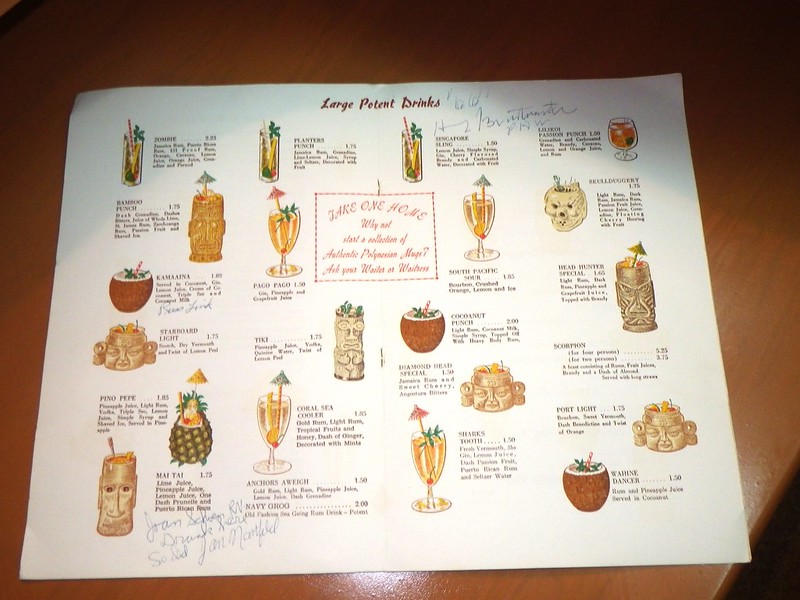 Large Potent Drinks
ZOMBIE 2.25
Jamaica Rum, Puerto Rican
Rum, 151 Proof Rum,
Orange, Curacao, Lemon
Juice, Orange Juice, Gren-
adine and Pernod
BAMBOO
PUNCH 1.75
Dash Grenadine, Dashes
Bitters, Juice of Whole Lime,
St. James Rum, Barbancourt
Rum, Passion Fruit and
Shaved Ice.
KAMAAINA 1.85
Served in Coconut, Gin,
Lemon Juice, Creme of Co-
conut, Triple Sec and
Coconut Milk
STARBOARD
LIGHT 1.75
Scotch, Dry Vermouth
and Twist of Lemon Peel
PINO PEPE 1.85
Pineapple Juice, Light Rum,
Vodka, Triple Sec, Lemon
Juice, Simple Syrup and
Shaved Ice, Served in Pine-
apple
MAI TAI 1.75
Lime Juice,
Pineapple Juice,
Lemon Juice, One
Dash Prunelle and
Puerto Rican Rum
Joan
RN
Drunk
So did Jan
PLANTERS
PUNCH 1.75
Jamaica Rum, Grenadine,
Lime-Lemon Juice, Syrup
and Seltzer, Decorated with
Fruit
TAKE ONE HOME
Why not
start a collection of
Authentic Polynesian Mugs?
Ask your Waiter or Waitress
PAGO PAGO 1.50
Gin, Pineapple and
Grapefruit Juice
TIKI 1.75
Pineapple Juice, Vodka,
Quinine Water, Twist of
Lemon Peel
CORAL SEA
COOLER 1.85
Gold Rum, Light Rum,
Tropical Fruits and
Honey, Dash of Ginger,
Decorated with Mints
ANCHORS AWEIGH 1.50
Gold Rum, Light Rum, Pineapple Juice,
Lemon Juice, Dash Grenadine
NAVY GROG 2.00
Old Fashion Sea Going Rum Drink - Potent
SINGAPORE
SLING 1.50
Lemon Juice, Simple Syrup,
Gin, Cherry Flavored
Brandy and Carbonated
Water, Decorated with
Fruit
SOUTH PACIFIC
SOUR 1.85
Bourbon, Crushed
Orange, Lemon and Ice
COCOANUT
PUNCH 2.00
Light Rum, Cocoanut Milk,
Simple Syrup, Topped Off
With Heavy Body Rum,
DIAMOND HEAD
SPECIAL 1.50
Jamaica Rum and
Sweet Cherry,
Angostura Bitters
SHARKS
TOOTH 1.50
Fresh Vermouth, Sloe
Gin, Lemon Juice,
Dash Passion Fruit,
Puerto Rican Rum
and Seltzer Water
LILIKOI
PASSION PUNCH 1.50
Grenadine and Carbonated
Water, Brandy, Curacao,
Lemon and Orange Juice,
and Rum
SKULLDUGGERY
1.75
Light Rum, Dark
Rum, Jamaica Rum,
Passion Fruit Juice,
Lemon Juice, Gren-
adine, Floating
Cherry Heering
with Fruit
HEAD HUNTER
SPECIAL 1.65
Light Rum, Dark
Rum, Pineapple and
Grapefruit Juice,
Topped with Brandy
SCORPION
(for four persons) 5.25
(for two persons) 3.75
A feast consisting of Rums, Fruit Juices,
Brandy and a Dash of Almond
Served with long straws
PORT LIGHT 1.75
Bourbon, Sweet Vermouth,
Dash Benedictine and Twist
of Orange
WAHINE
DANCER 1.50
Rum and Pineapple Juice
Served in Cocoanut